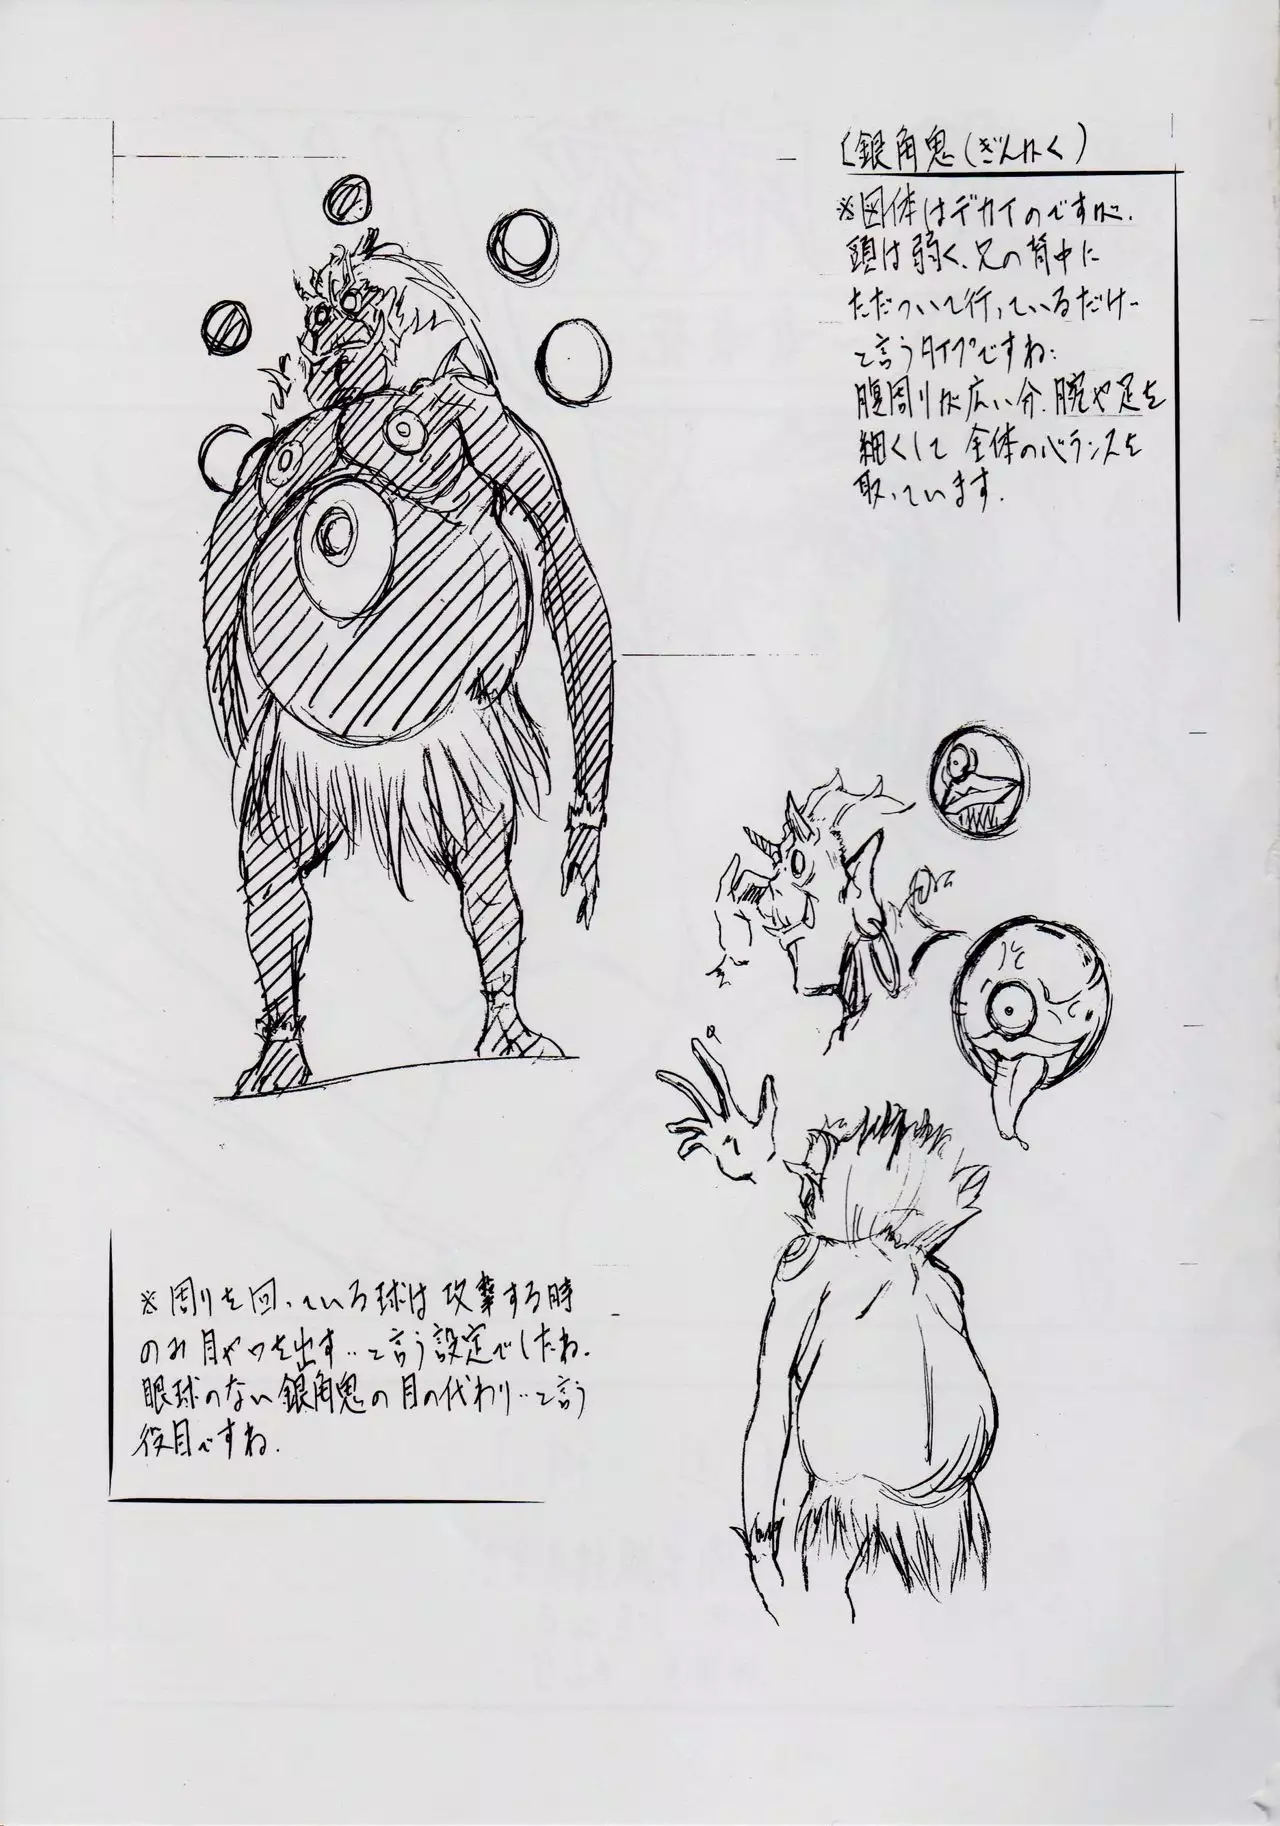 銀角鬼(ぎんかく)
※図体はデカイのですが、
頭は弱く、兄の背中に
ただついて行っているだけ…
と言うタイプですね…
腹周りが広い分、腕や足を
細くして全体のバランスを
取っています。
※周りを回っている球は攻撃する時
のみ目や口を出す…と言う設定でしたね。
眼球のない銀角鬼の目の代わり…と言う
役目ですね。